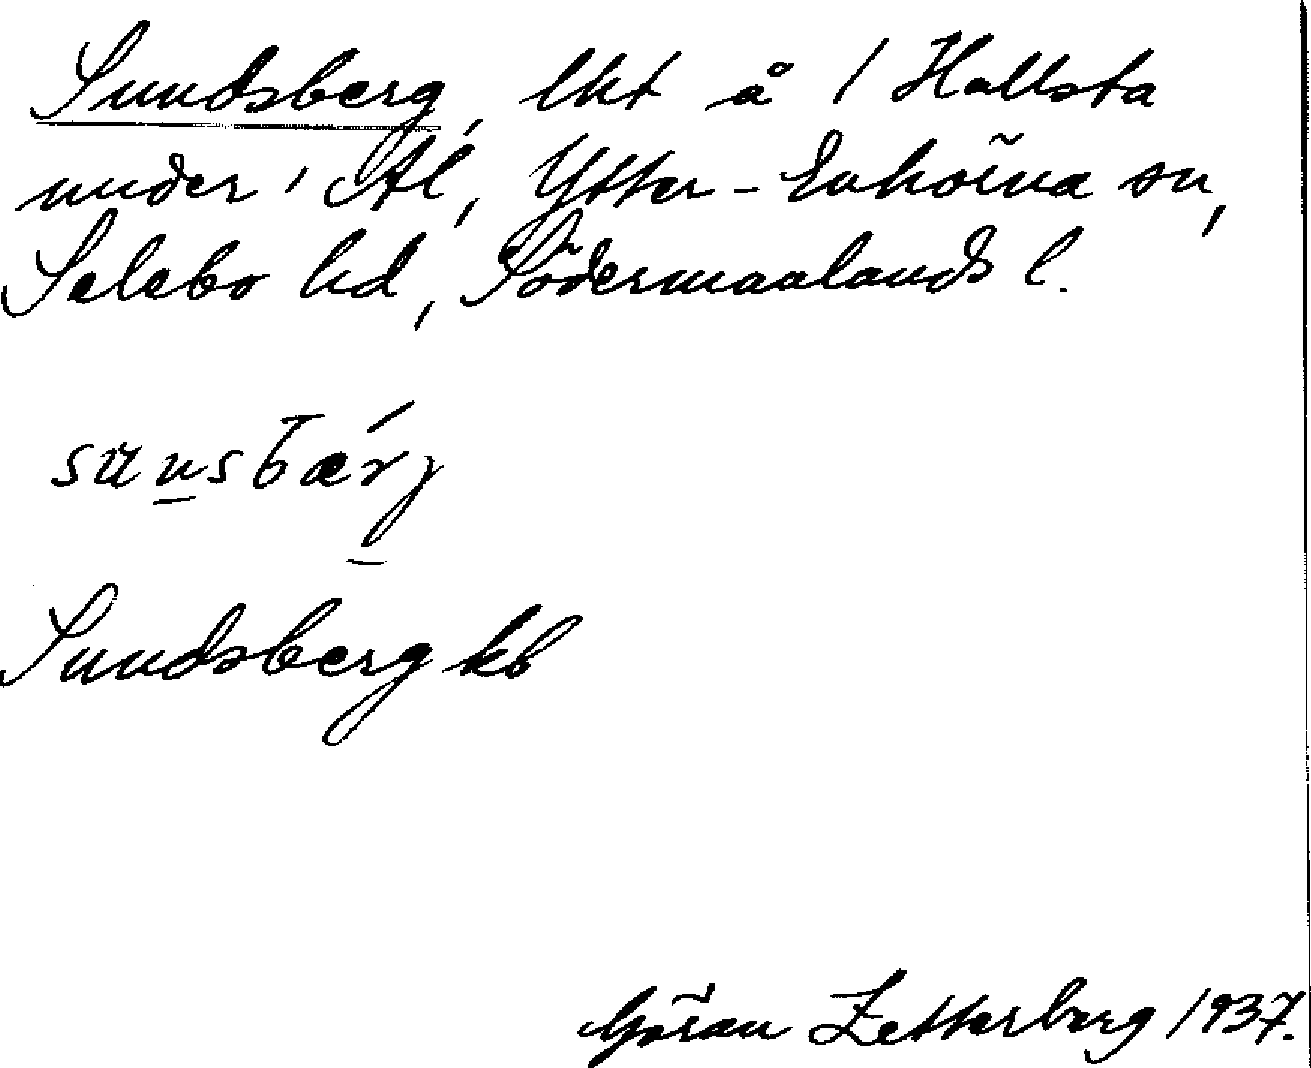 Sundsberg, lht å / Hallsta
under ' Al, Ytter-Enhörna sn,
Selebo hd, Södermanlands l.
sunsbærj
Sundsberg kb
Göran Zetterberg 1937.